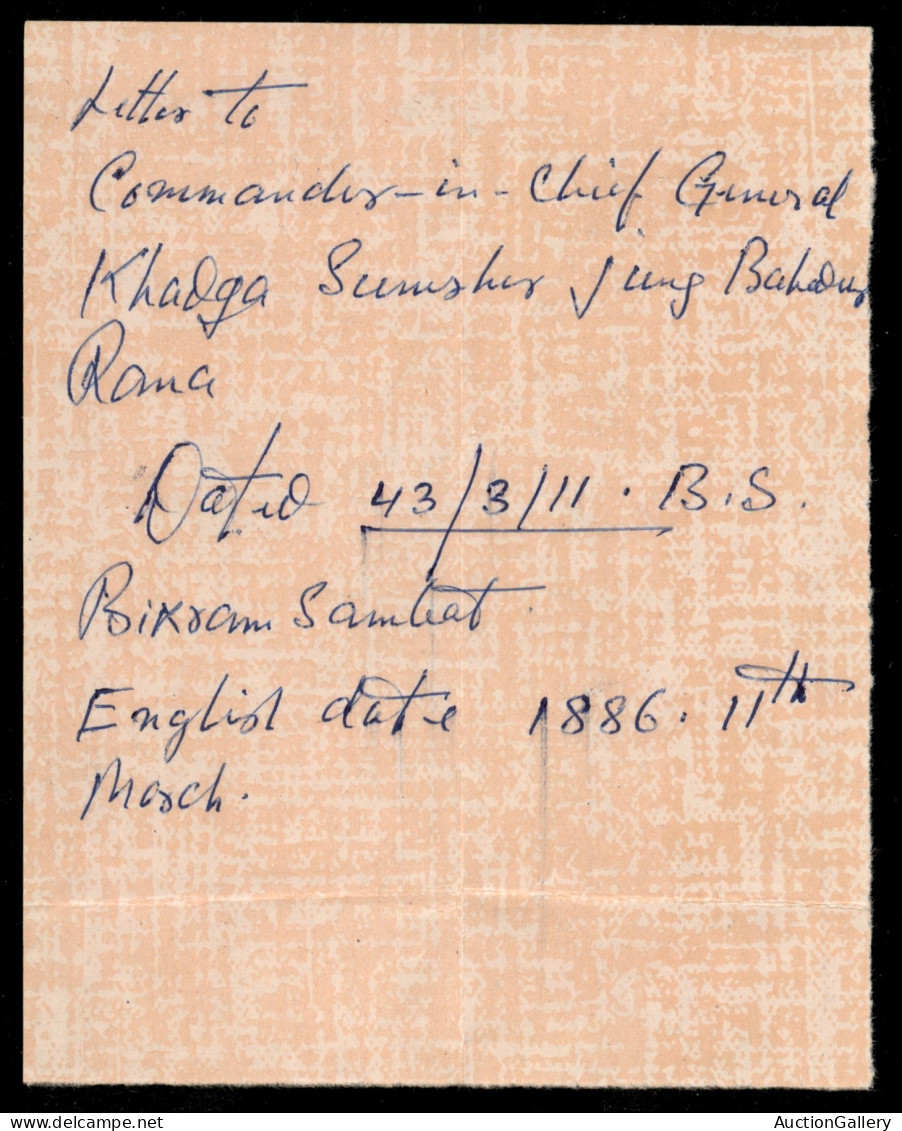 Letter to
Commander-in-Chief General
Khadga Sumsher Jung Bahadur
Rana
Dated 43/3/11. B.S.
Bikram Sambat.
English date 1886. 11th
March.
AuctionGallery